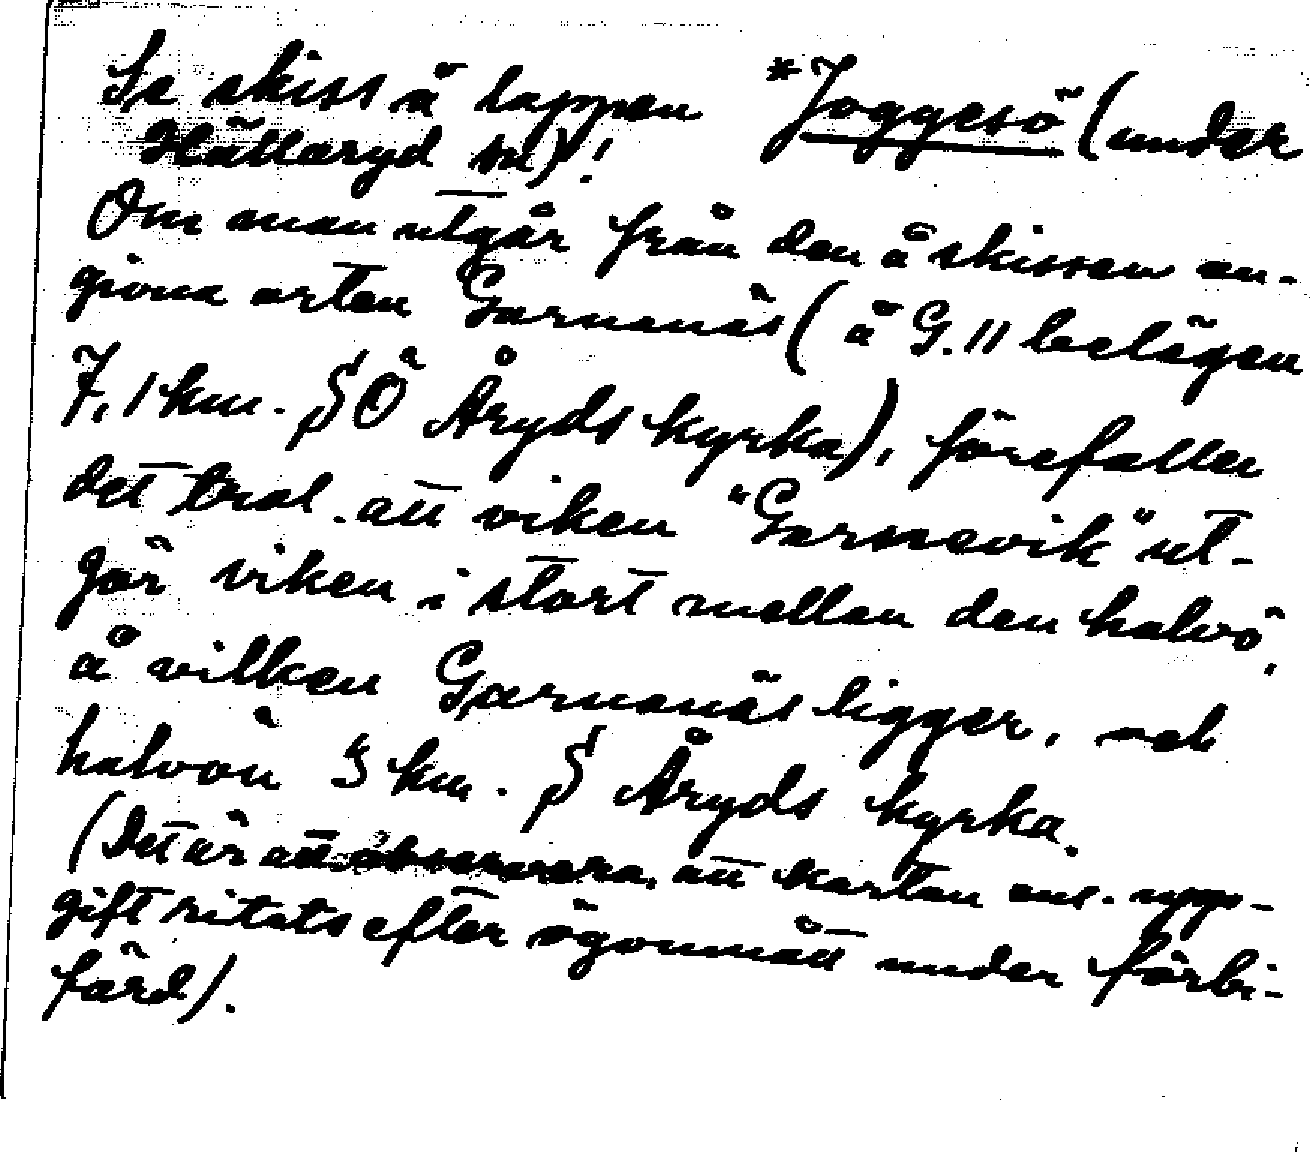 Se skiss å lappen *Joggesö (under
Hällaryd sn)!
Om man utgår från den å skissen an-
givna orten Garnanäs (å G.11 belägen
7,1 km. SÖ Åryds kyrka), förefaller
det trol. att viken "Garnavik" ut-
gör viken i stort mellan den halvö,
å vilken Garnanäs ligger, och
halvön 3 km. S Åryds kyrka.
(Det är att observera, att kartan enl. upp-
gift ritats efter ögonmått under förbi-
färd).